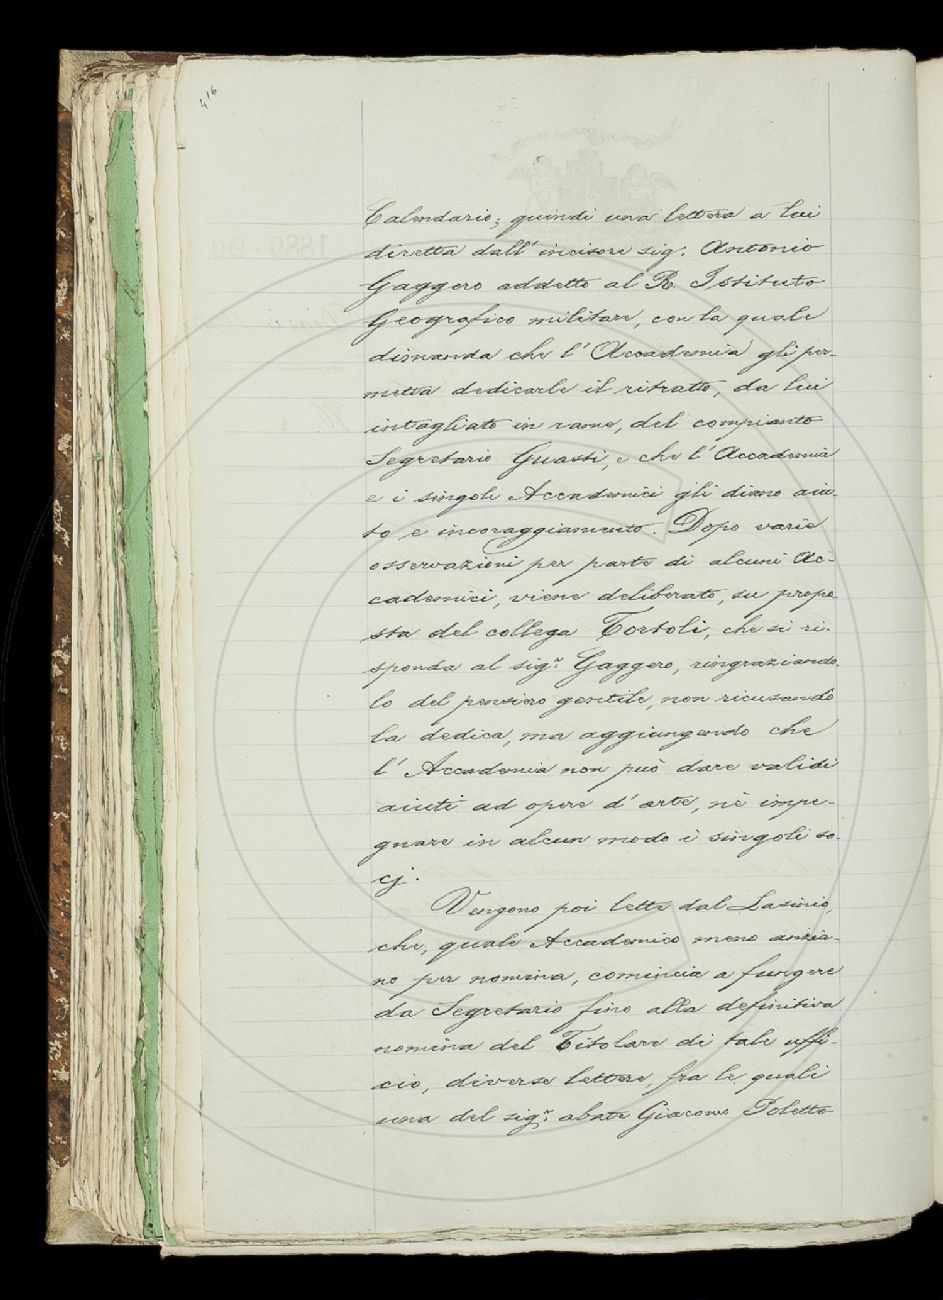 416
Calendario; quindi una lettera a lui
diretta dall' incisore sig. Antonio
Gaggero addetto al R. Istituto
Geografico militare, con la quale
dimanda che l' Accademia gli per-
metta dedicarle il ritratto, da lui
intagliato in rame, del compianto
Segretario Guasti, e che l' Accademia
e i singoli Accademici gli diano aiu-
to e incoraggiamento. Dopo varie
osservazioni per parte di alcuni Ac-
cademici, viene deliberato, su propo
sta del collega Tortoli, che si ri-
sponda al sigr. Gaggero, ringraziando
lo del pensiero gentile, non ricusando
la dedica, ma aggiungendo che
l' Accademia non può dare validi
aiuti ad opere d' arte, nè impe-
gnare in alcun modo i singoli so-
cj.
Vengono poi lette dal Lasinio,
che, quale Accademico meno anzia-
no per nomina, comincia a fungere
da Segretario fino alla definitiva
nomina del Titolare di tale uffi-
cio, diverse lettere, fra le quali
una del sigr. abate Giacomo Poletto
1889-90